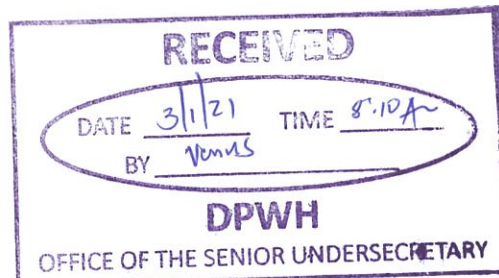 RECEIVED
DATE 3/1/21 TIME 8:10 A
BY Venus
DPWH
OFFICE OF THE SENIOR UNDERSECRETARY